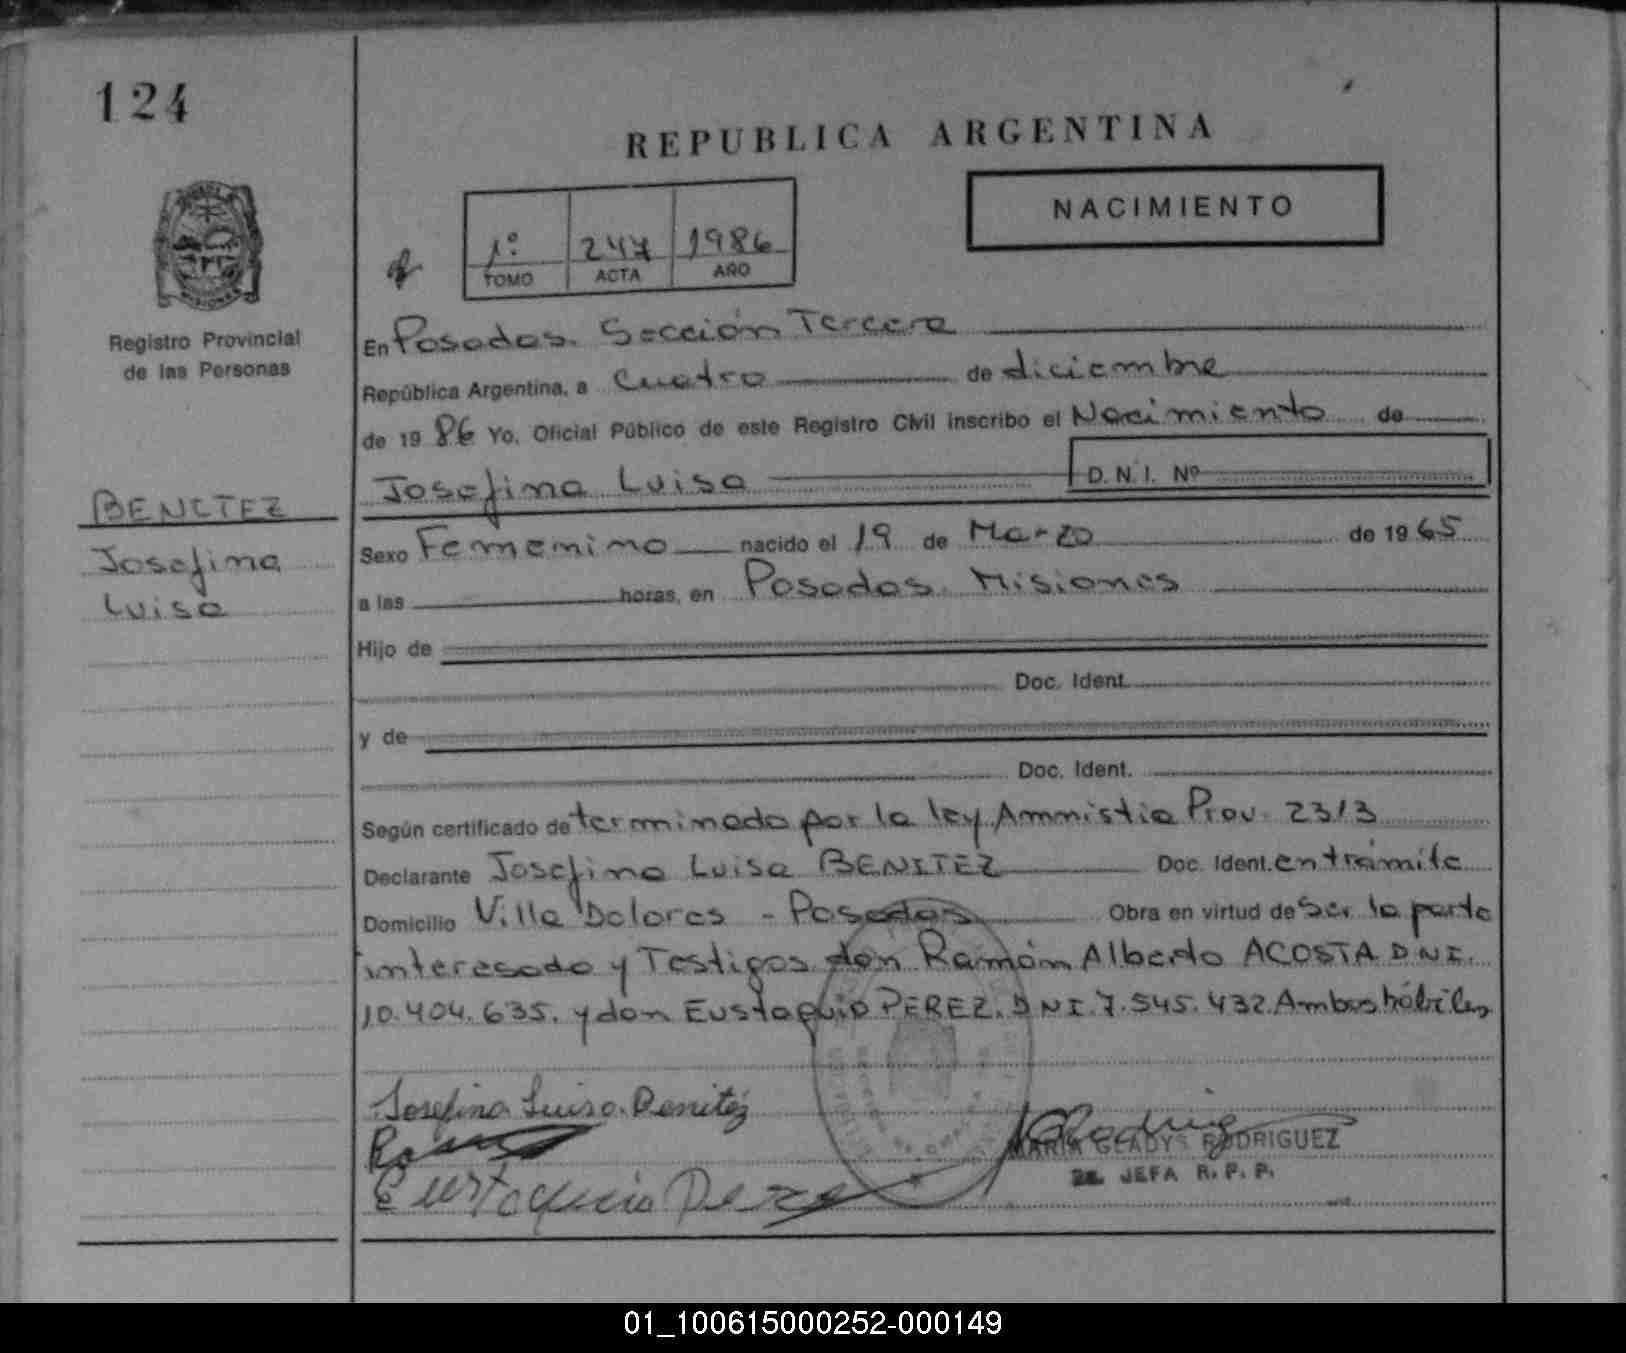 124
REPUBLICA ARGENTINA
NACIMIENTO
1º 247 1986
TOMO ACTA AÑO
Registro Provincial
de las Personas
En Posadas. Sección Tercera
República Argentina, a Cuatro de diciembre
de 1986 Yo, Oficial Público de este Registro Civil inscribo el Nacimiento de
Josefina Luisa D.N.I. Nº
BENITEZ
Josefina
Luisa
Sexo Femenino nacido el 19 de Marzo de 1965
a las horas, en Posadas. Misiones
Hijo de
Doc. Ident.
y de
Doc. Ident.
Según certificado determinado por la ley Amnistia Prov. 2313
Declarante Josefina Luisa BENITEZ Doc. Ident. en trámite
Domicilio Villa Dolores - Posadas Obra en virtud de Ser la parte
interesada y Testigos don Ramón Alberto ACOSTA DNI.
10.404.635. y don Eustaquio PEREZ. DNI. 7.545.432. Ambos hábiles
Josefina Luisa Benitez
Eustaquio Perez
MARIA GLADYS RODRIGUEZ
JEFA R. P. P.
01_100615000252-000149